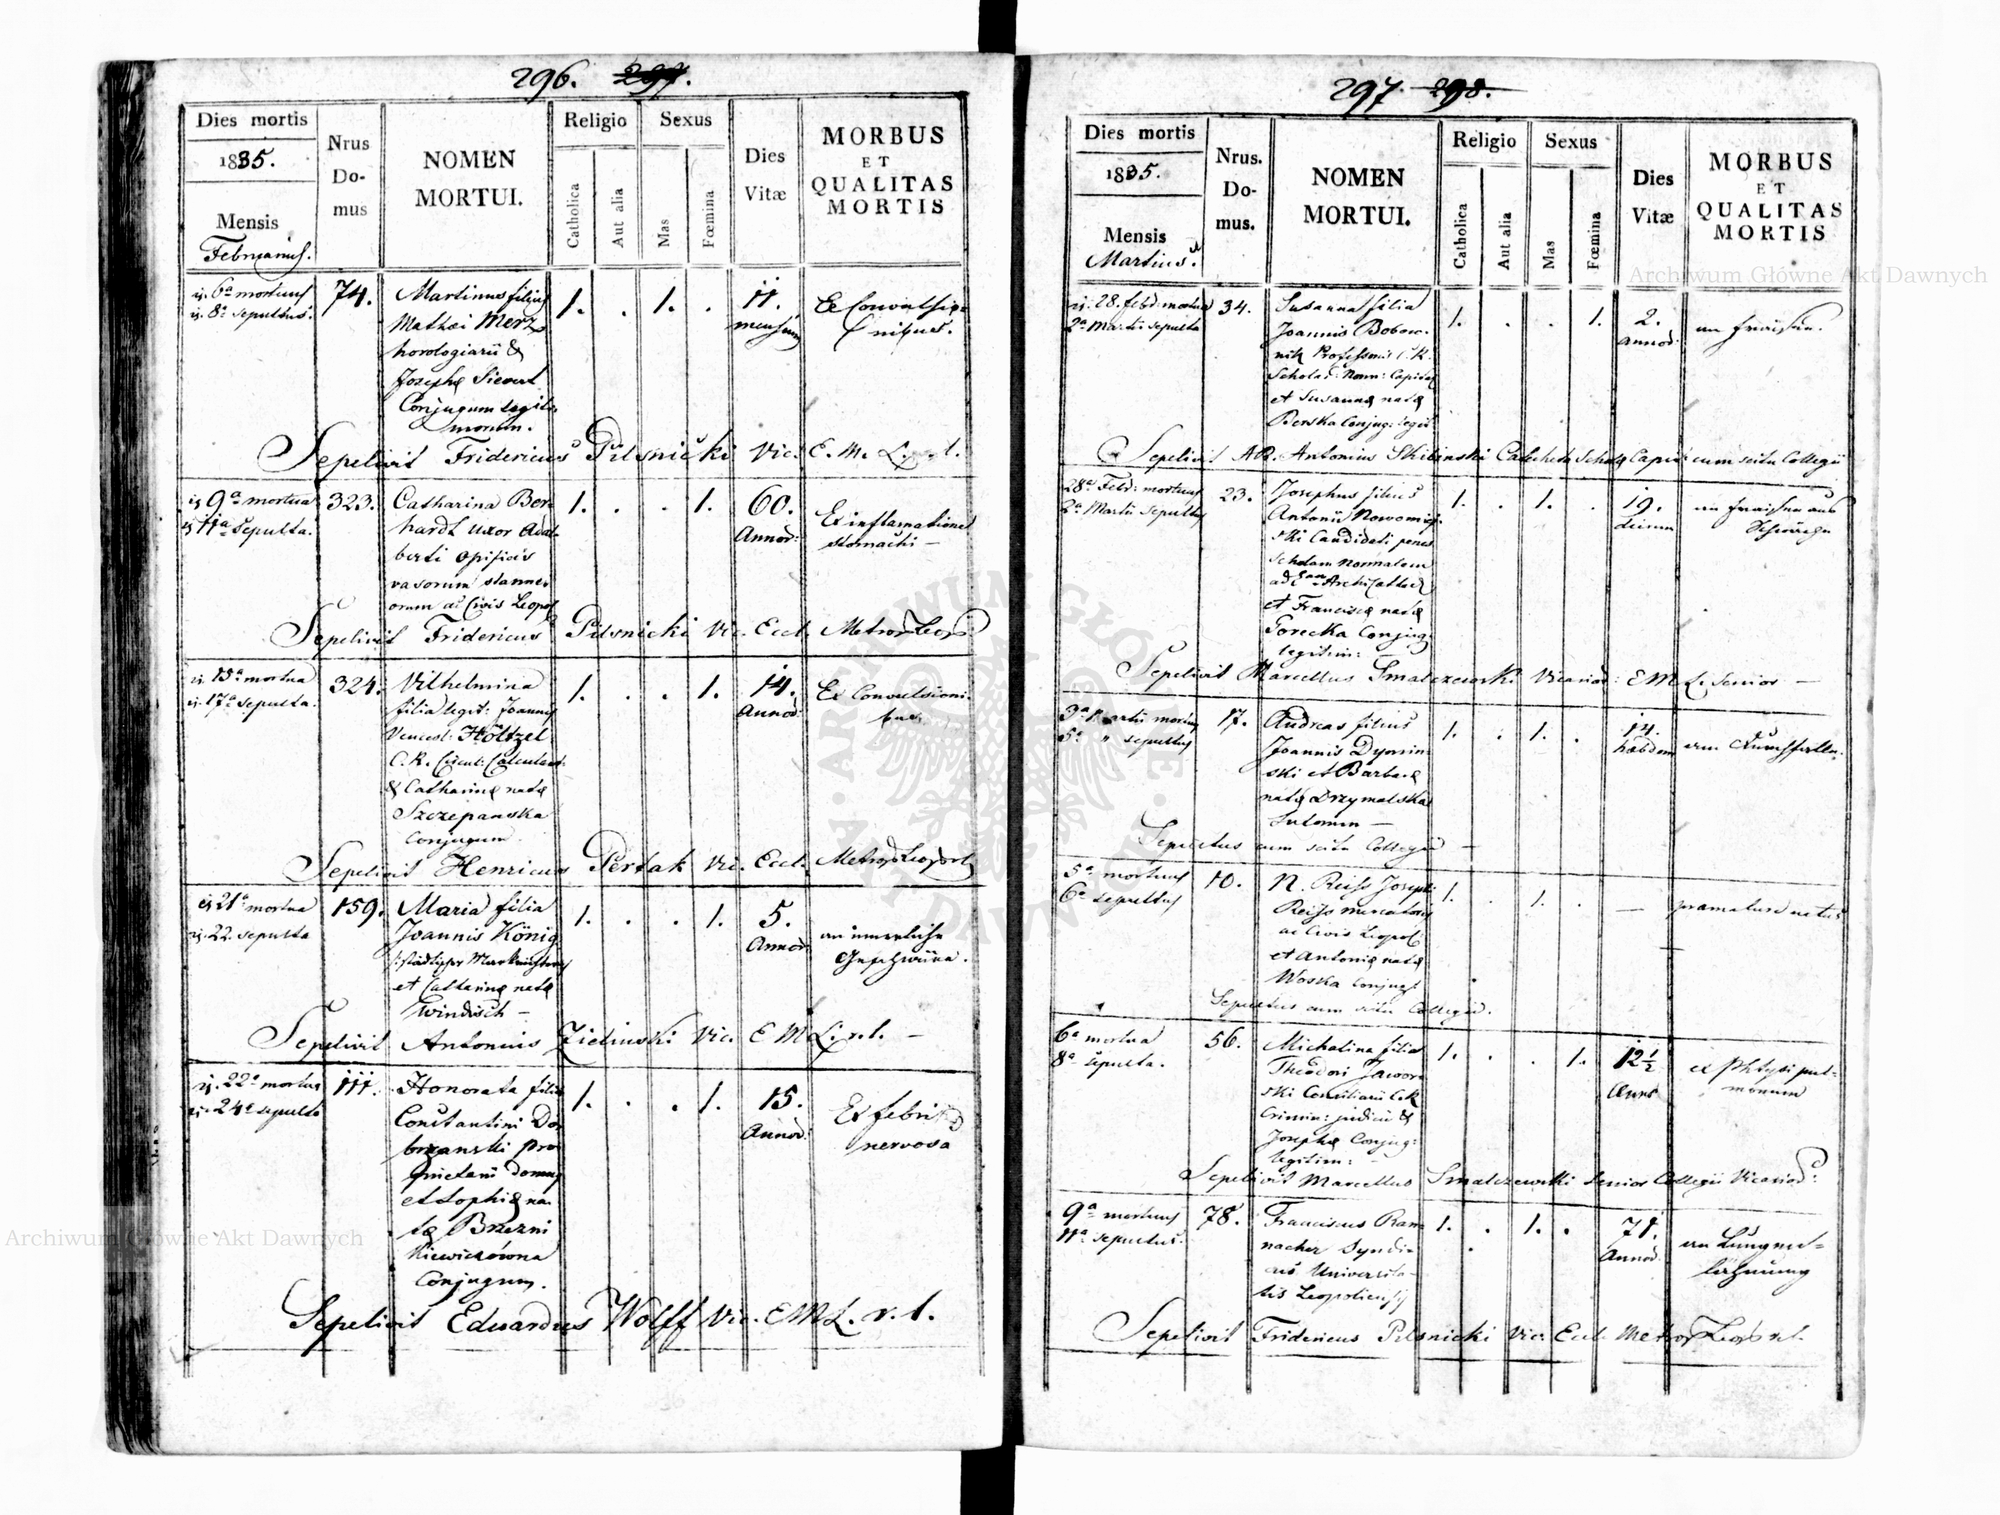 296. 297.
Dies mortis
1835.
Mensis
Februarius.
Nrus
Do-
mus
NOMEN
MORTUI.
Religio
Catholica
Aut alia
Sexus
Mas
Fœmina
Dies
Vitæ
MORBUS
ET
QUALITAS
MORTIS
6ª mortuus
8ª sepultus.
74.
Martinus filius
Mathæi Merz
horologiarii &
Josephæ Sievert
Conjugum legiti-
morum.
1. . 1. .
11.
mensium
Ex Convulsio-
nibus.
Sepelivit Fridericus Pilsnicki Vic. E. M. L.
9ª mortua
11ª sepulta.
323.
Catharina Ber-
hardt uxor Adal-
berti opificis
vasorum stanne-
orum ac Civis Leopol
1. . . 1.
60.
Annor:
Ex inflamatione
stomachi —
Sepelivit Fridericus Pilsnicki Vic. Eccl. Metrop. Leop.
15ª mortua
17ª sepulta.
324.
Vilhelmina
filia legit: Joannis
Vencesl: Höltzel
C. R. Circul: Calculant:
& Catharinæ natæ
Szczepanska
Conjugum.
1. . . 1.
14.
Annor:
Ex Convulsioni-
bus
Sepelivit Henricus Pertak Vic. Eccl. Metrop. Leop. r.l.
21ª mortua
22. sepulta
159.
Maria filia
Joannis König
et Catharinæ natæ
Windisch —
1. . . 1.
5.
Annor
an innerliche
Geschwüre.
Sepelivit Antonius Zielinski Vic. E M L. r.l. —
22ª mortua
24ª sepulta
111.
Honorata filia
Constantini Do-
brzanski pro-
prietarii domus
et Sophiæ na-
tæ Brzezni
kiewiczówna
Conjugum.
1. . . 1.
15.
Annor:
Ex febri
nervosa
Sepelivit Eduardus Wolff Vic. E M L. r. l.
297 298.
Dies mortis
1835.
Mensis
Martius.
Nrus.
Do-
mus.
NOMEN
MORTUI.
Religio
Catholica
Aut alia
Sexus
Mas
Fœmina
Dies
Vitæ
MORBUS
ET
QUALITAS
MORTIS
28. febr. mortua
2ª Martii sepulta
34.
Susanna filia
Joannis Bobow-
nik Professoris C. R.
Scholar: Norm: Capital
et Susannæ natæ
Berska Conjug: legit:
1. . . 1.
2.
Annor:
an Fraisen.
Sepelivit AR. Antonius Skibinski Catecheta Schol. Capit: cum scitu Collegii
28ª Febr: mortuus
2ª Martii sepultus
23.
Josephus filius
Antonii Nowomiej-
ski Candidati penes
Scholam Normalem
ad Archicathed
et Franciscæ natæ
Gorecka Conjug:
legitim:
1. . 1. .
19.
dierum
an Fraisen aus
Schwäche
Sepelivit Marcellus Smalczewski Vicarior: E M L. Senior —
3ª Martii mortuus
5ª " sepultus
17.
Andreas filius
Joannis Dymin-
ski et Barbaræ
natæ Drzymalska
1. . 1. .
14.
hebdom
am Durchfalle.
Sepultus cum scitu Collegii —
5ª mortuus
6ª sepultus
10.
N. Reiss Joseph:
Reiss mercatoris
ac Civis Leopol
et Antoniæ natæ
Woska Conjug:
1. . 1. . —
præmature natus
Sepultus cum scitu Collegii.
6ª mortua
8ª sepulta.
56.
Michalina filia
Theodori Jawor-
ski Consiliarii C. R.
Crimin: judicii &
Josephæ Conjug:
legitim:
1. . . 1.
12 ½
Annor
ex phtysi pul-
monum
Sepelivit Marcellus Smalczewski Senior Collegii Vicarior:
9ª mortuus
11ª sepultus.
78.
Franciscus Ram-
nacher Syndi-
cus Universita-
tis Leopoliensis
1. . 1. .
71.
Annor:
an Lungen-
lähmung
Sepelivit Fridericus Pilsnicki Vic. Eccl. Metrop. Leop. r.l.
Archiwum Główne Akt Dawnych
Archiwum Główne Akt Dawnych
ARCHIWUM GŁÓWNE AKT DAWNYCH